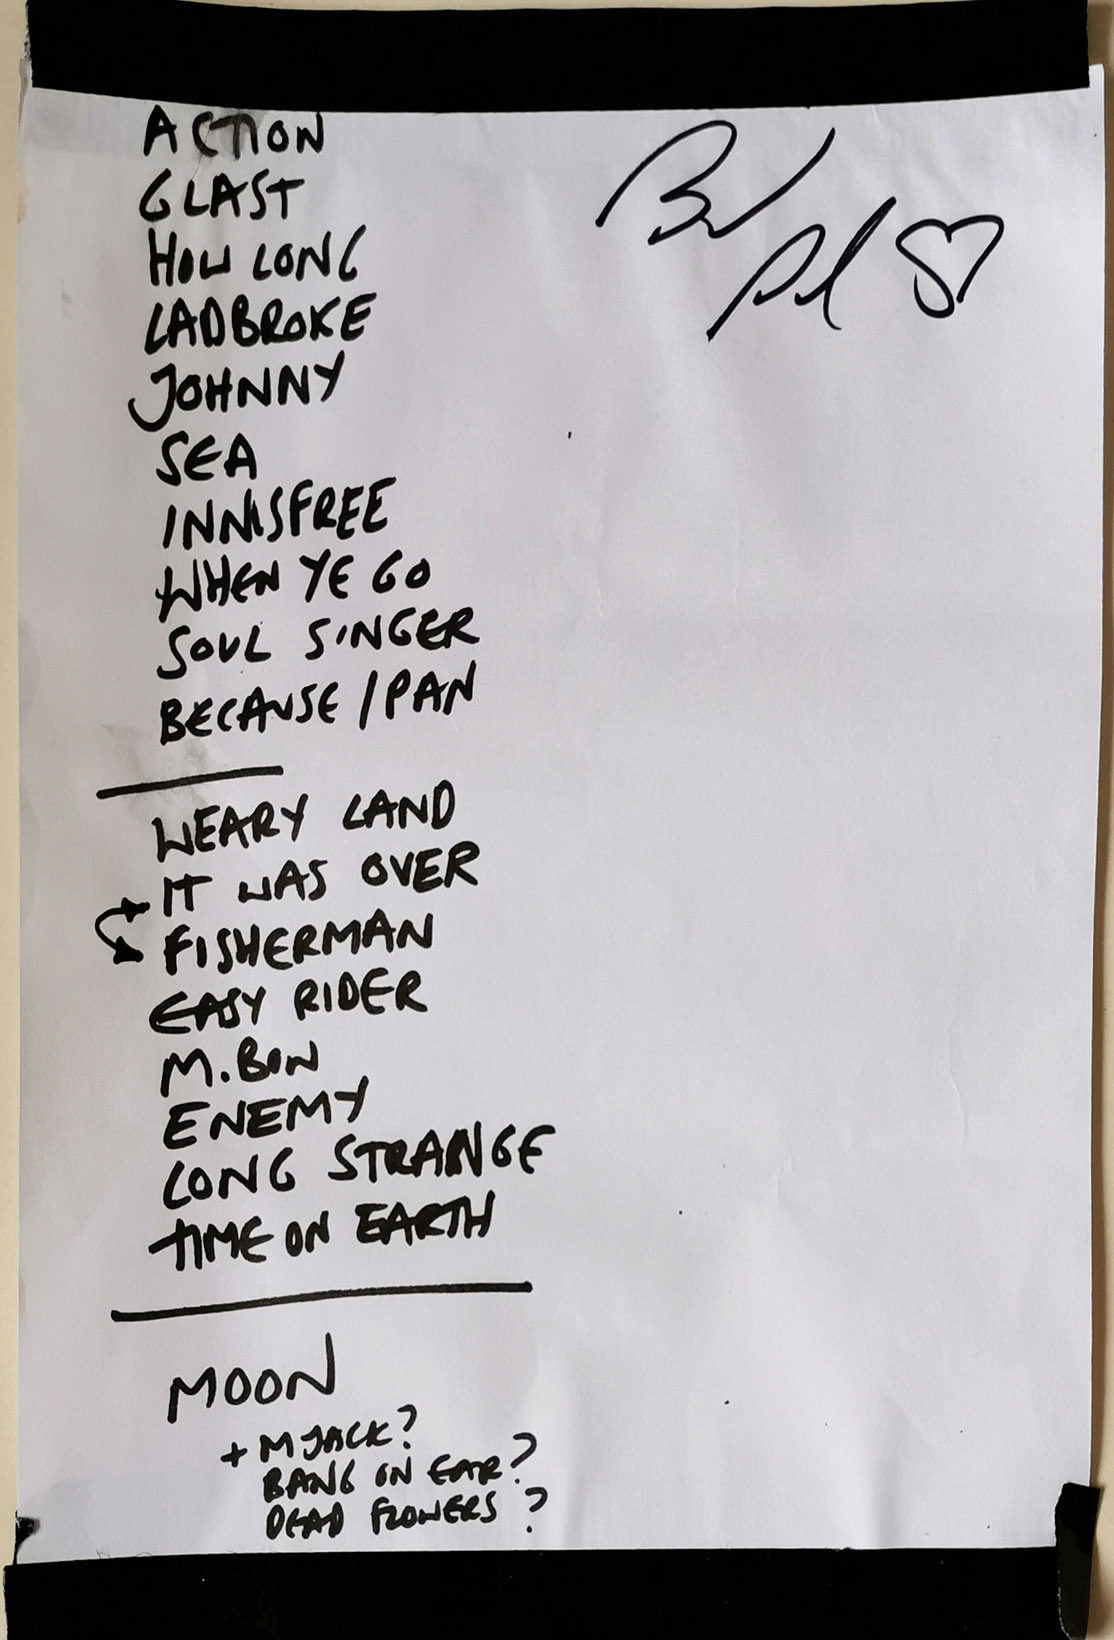 ACTION
GLAST
HOW LONG
LADBROKE
JOHNNY
SEA
INNISFREE
WHEN YE GO
SOUL SINGER
BECAUSE / PAN
WEARY LAND
IT WAS OVER
FISHERMAN
EASY RIDER
M. BON
ENEMY
LONG STRANGE
TIME ON EARTH
MOON
+ M JACK?
BANG ON EAR?
DEAD FLOWERS ?